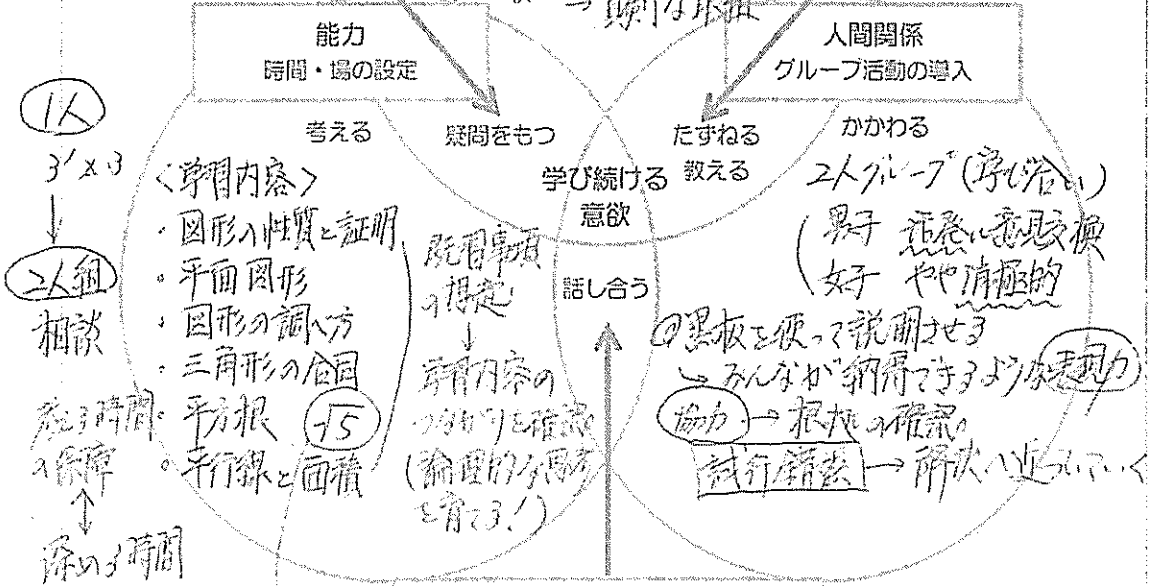 → 真剣な取組
能力
時間・場の設定
人間関係
グループ活動の導入
考える
疑問をもつ
たずねる
教える
かかわる
学び続ける
意欲
話し合う
1人
3'×3
↓
2人組
相談
考える時間
の保障
↕
深める時間
<学習内容>
・図形の性質と証明
・平面図形
・図形の調べ方
・三角形の合同
・平方根 √5
・平行線と面積
既習事項
の想起
↓
学習内容の
つながりを確認。
(論理的な思考
を育てる!)
2人グループ(学び合い)
男子 活発に意見交換
女子 やや消極的
黒板を使って説明させる
↳ みんなが納得できるような表現力
協力 → 根拠の確認。
試行錯誤 → 解決へ近づいていく